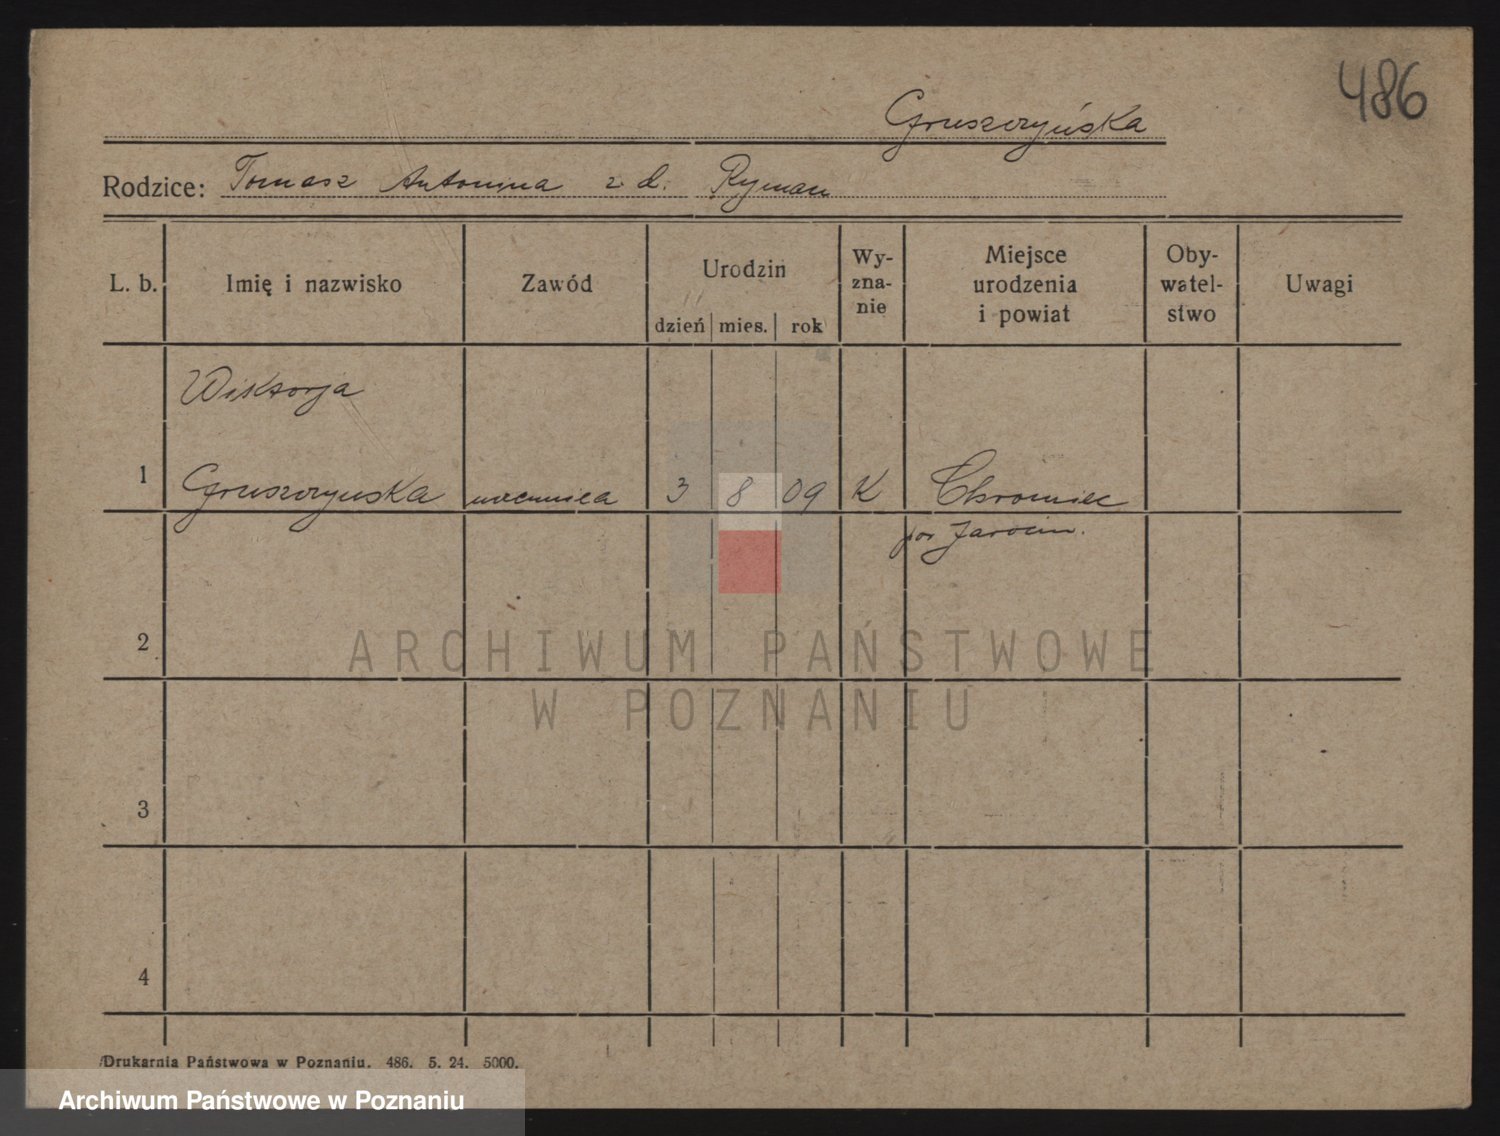 486
Gruszczyńska
Rodzice: Tomasz Antonina z d. Ryman
L. b. Imię i nazwisko Zawód Urodzin dzień mies. rok Wy-zna-nie Miejsce urodzenia i powiat Oby-watel-stwo Uwagi
Wiktorja
1 Gruszczynska uczennica 3 8 09 K Chromiec
pow Jarocin.
2
3
4
Drukarnia Państwowa w Poznaniu. 486. 5. 24. 5000.
ARCHIWUM PAŃSTWOWE
W POZNANIU
Archiwum Państwowe w Poznaniu